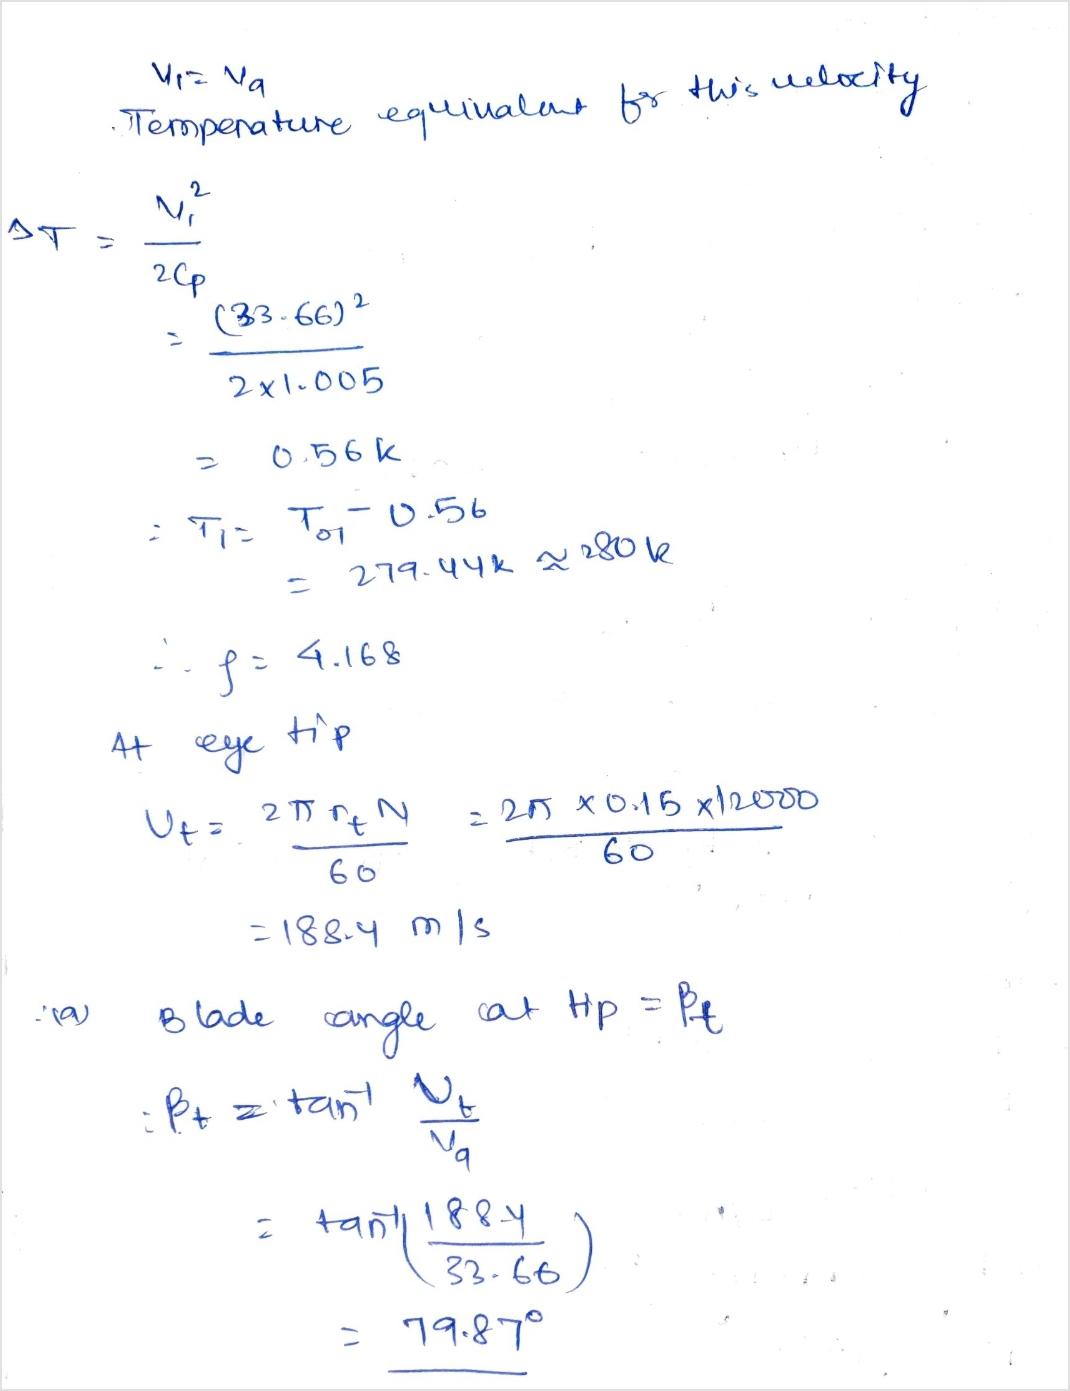 V₁ = Va
Temperature equivalent for this velocity
ΔT = V₁² / 2Cp
= (33.66)² / 2x1.005
= 0.56k
: T₁ = T₀₁ - 0.56
= 279.44k ≈ 280k
∴ ρ = 4.168
At eye tip
Ut = 2π rt N / 60 = 2π x 0.15 x 12000 / 60
= 188.4 m/s
∴(a) Blade angle at tip = βt
: βt = tan⁻¹ Ut / Va
= tan⁻¹ (188.4 / 33.66)
= 79.87°